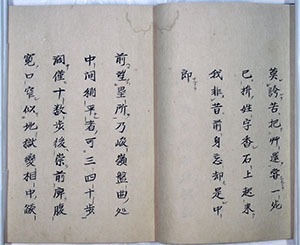 莫誇苦把艸蓮一
已拚姓字香石上起來
我非昔前身忘却是中
即
前望所乃峻嶺盤曲处
中间稍平者可三四十步
洞僅十数步後崇前庳腹
寛口窄似地獄變相中